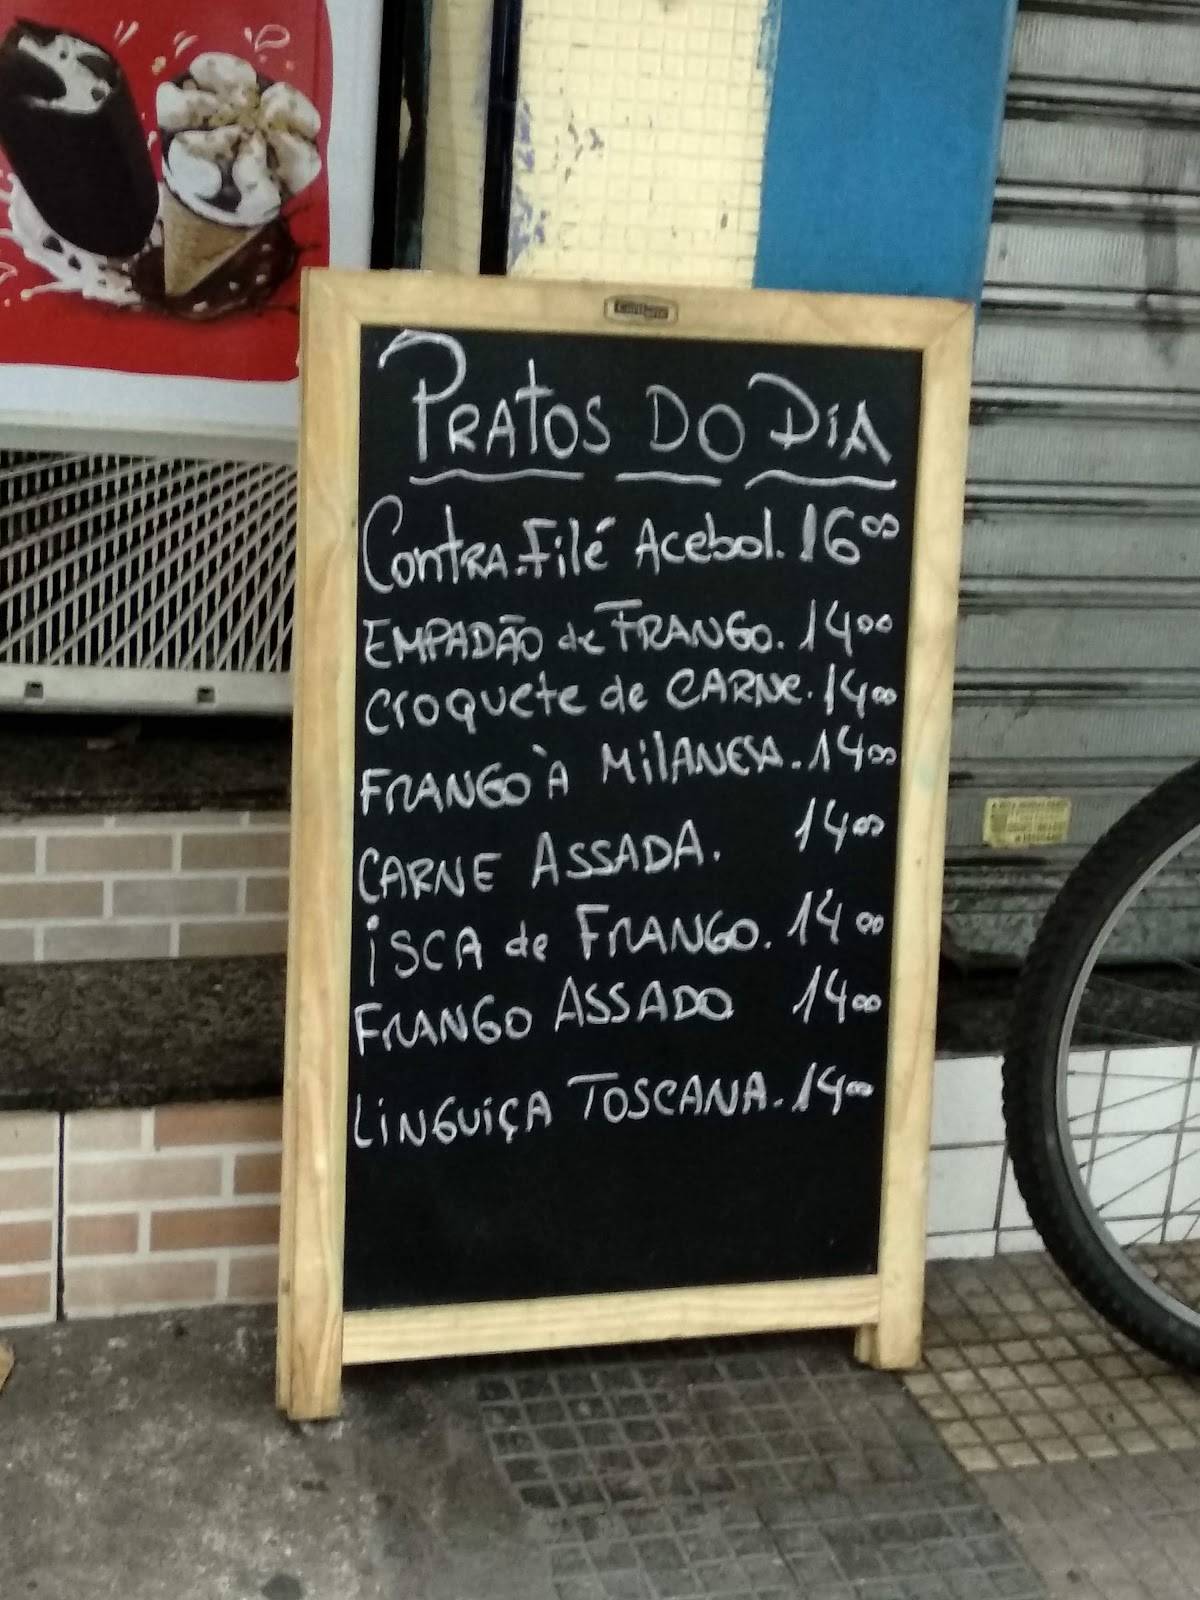 PRATOS DO DIA
CONTRA-FILÉ Acebol. 16 00
EMPADÃO de FRANGO. 14 00
croquete de CARNE. 14 00
FRANGO À MILANESA. 14 00
CARNE ASSADA. 14 00
ISCA de FRANGO. 14 00
FRANGO ASSADO 14 00
LINGUIÇA TOSCANA. 14 00